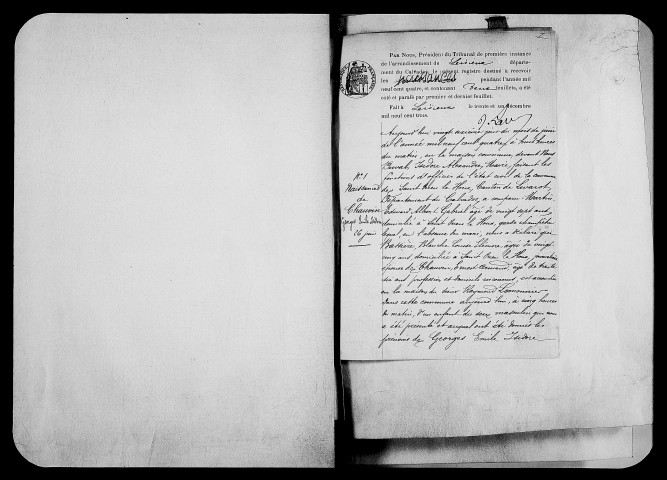 PAR NOUS, Président du Tribunal de première instance
de l'arrondissement de Lisieux départe-
ment du Calvados, le présent registre destiné à recevoir
les naissances pendant l'année mil
neuf cent quatre, et contenant deux feuillets, a été
coté et parafé par premier et dernier feuillet.
Fait à Lisieux le trente et un décembre
mil neuf cent trois.
Aujourd'hui vingt sixième jour du mois de juin
de l'année mil neuf cent quatre, à huit heures
du matin, en la maison commune, devant Nous
Isidore Alexandre, Maire, faisant les
fonctions d'officier de l'état civil de la commune
de Saint Ouen le Houx, Canton de Livarot,
Département du Calvados, a comparu Martin,
Edouard Albert Gabriel âgé de vingt sept ans,
domicilié à Saint Ouen le Houx, garde champêtre
lequel, en l'absence du mari, nous a déclaré que
Bassière, Blanche Louise Eléonore, âgée de vingt
cinq ans domiciliée à Saint Ouen le Houx,
épouse de Chauvin, Ernest Armand, âgé de trente
six ans profession et domicile inconnus, est accouchée
en la maison du sieur Raymond Lemonnier
dans cette commune aujourd'hui, à cinq heures
du matin, d'un enfant du sexe masculin qui nous
a été présenté et auquel ont été donnés les
prénoms de Georges Emile Isidore
N° 1
Naissance
de
Chauvin
Georges Emile Isidore
26 juin